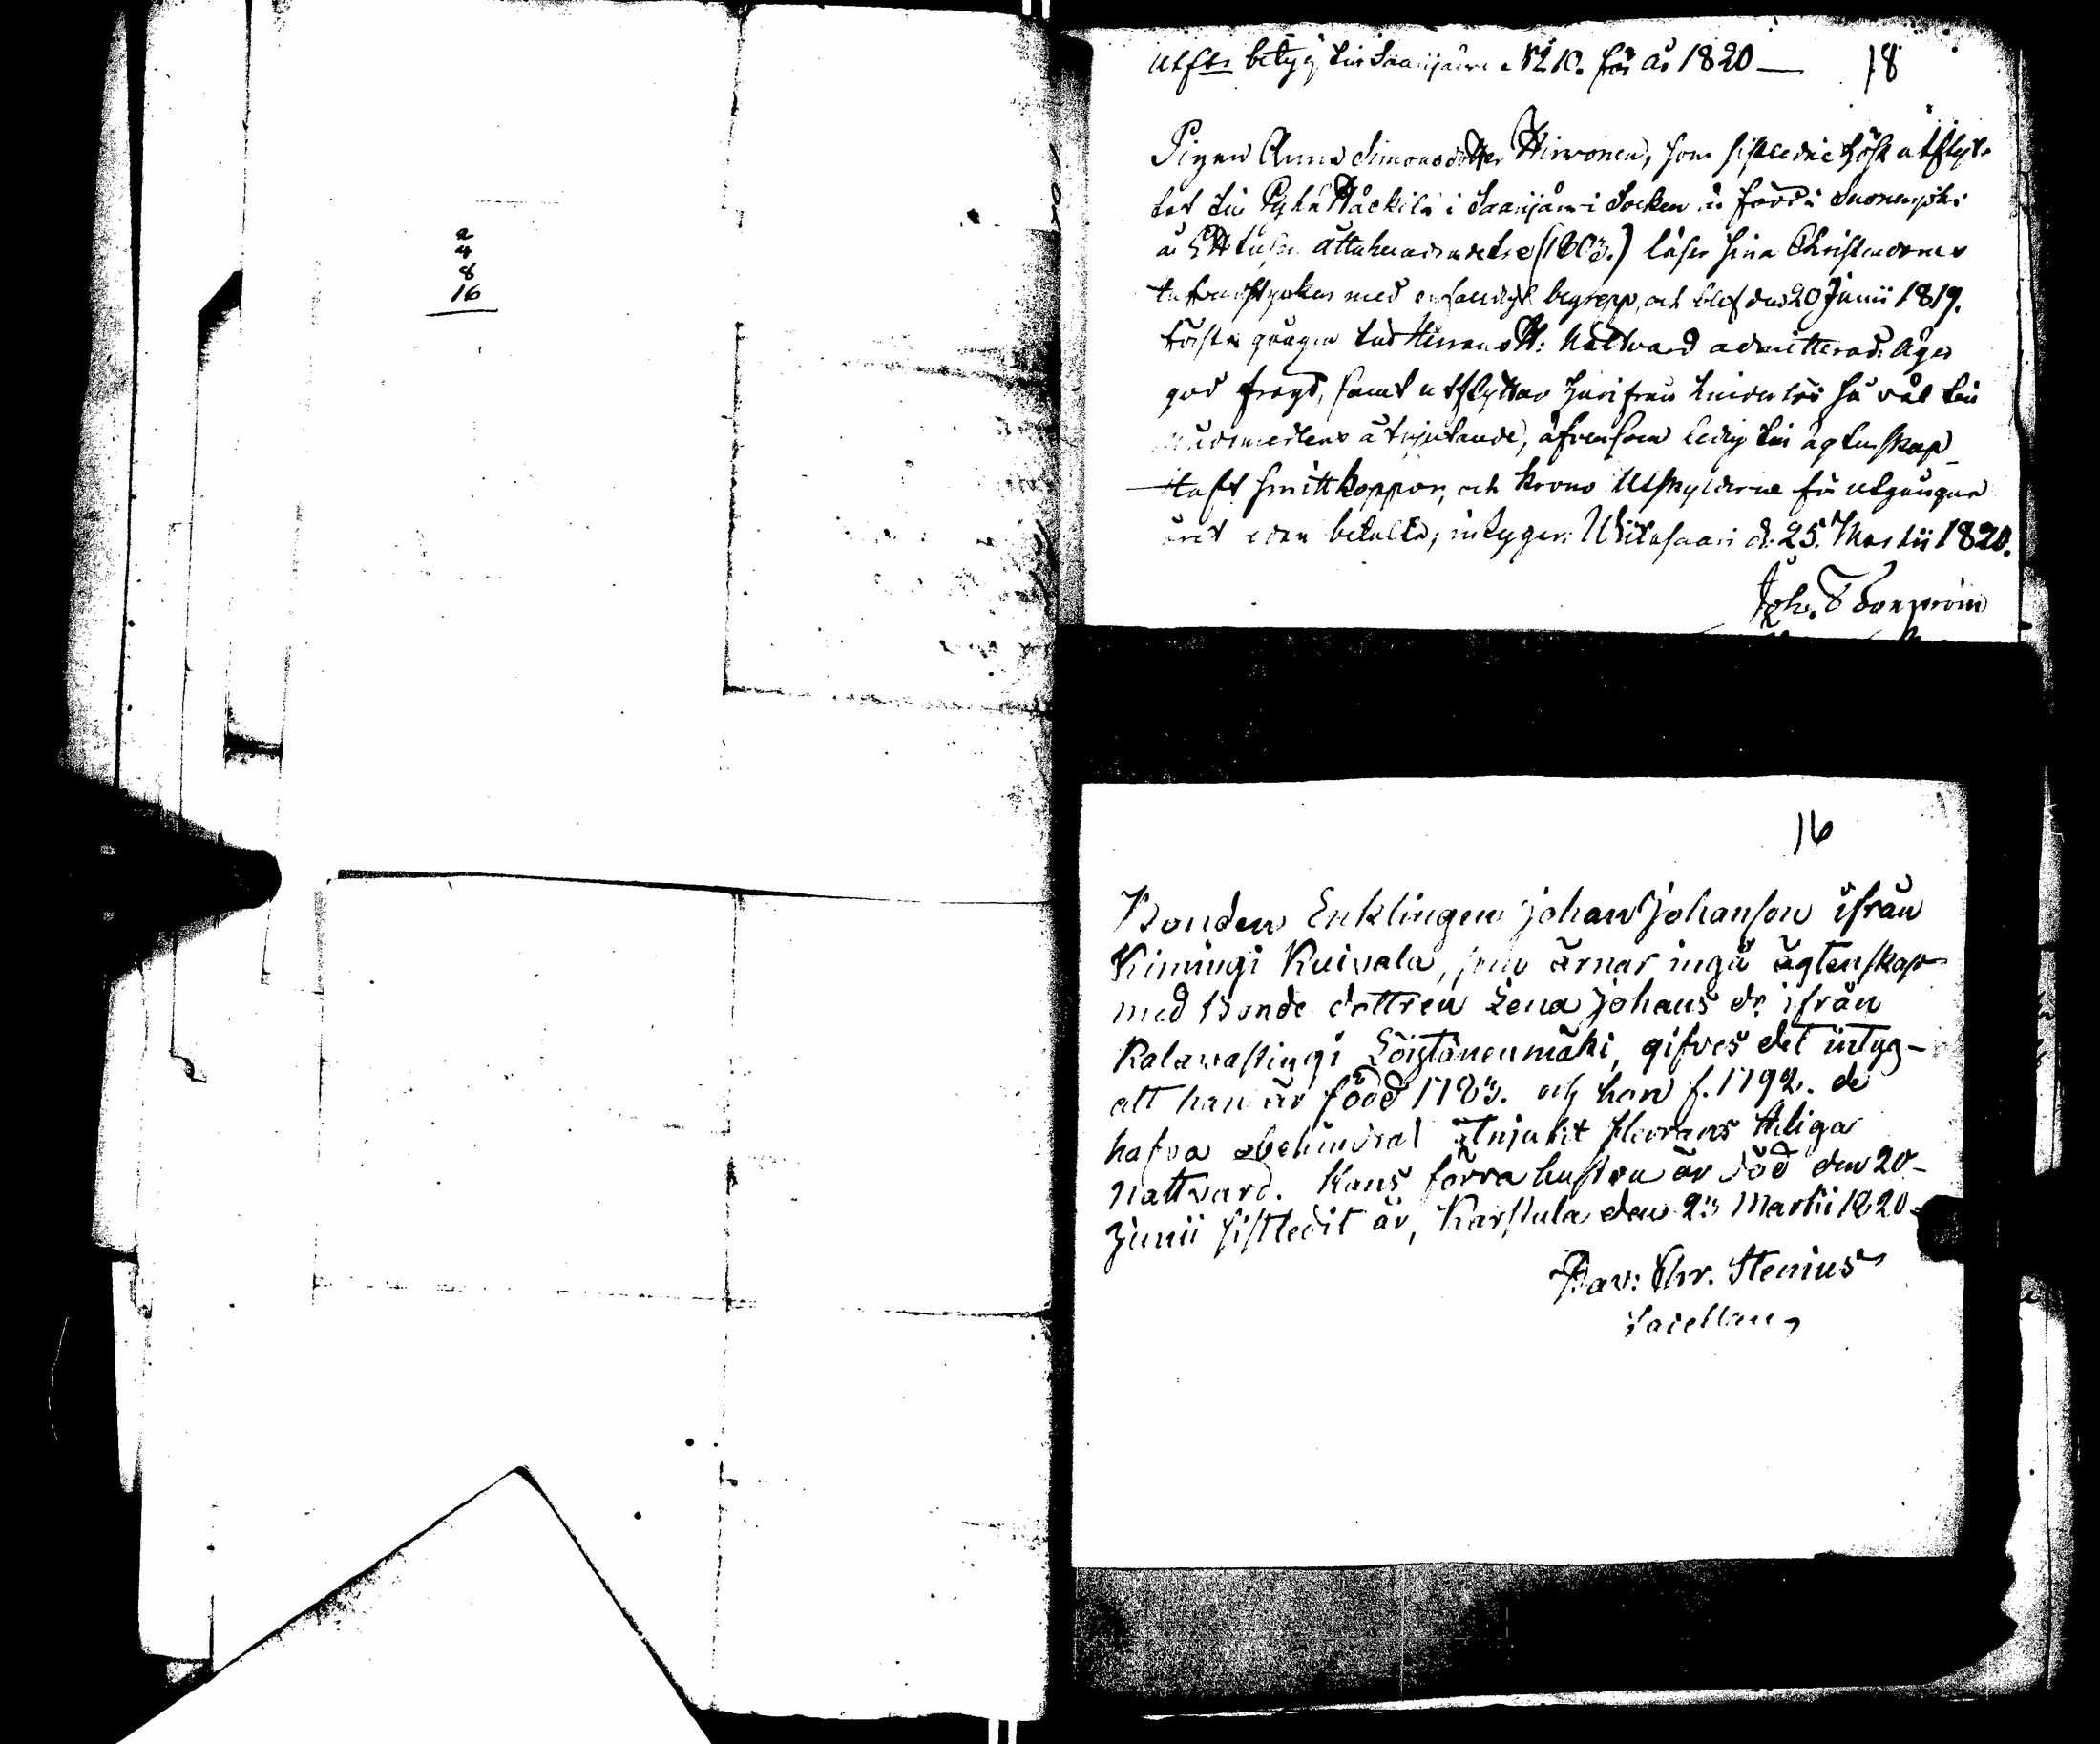 2
4
8
16
Utfl: betyg till Saarijärvi N 10. för år 1820 — 18
Pigan Anna Simonsdotter Hirvonen, som sistledne höst utflyt-
tat till Pyhä Häckilä i Saarijärvi Socken är född i
år Ett tusen Åttahundrade tre (1803.) läser sina Christendoms
med begrepp, och blef den 20 Junii 1819.
första gången till Herrans H: Nattvard admitterad. Äger
god frägd, samt utflyttar härifrån hinderlös så väl till
Nattvardens åtnjutande, äfvensom ledig till ägtenskap
Haft Smittkoppor, och Krono Utskylderne för utgångne
året redan betalte; intygar. Witasaari d. 25. Martii 1820.
Joh.
16
Bonden Enklingen Johan Johanson ifrån
Kimingi Kuivala, som ärnar ingå ägtenskap
med Bonde dottren Lena Johans dr ifrån
Kalmari Löytänenmäki, gifves det intyg-
att han är född 1783. och hon f. 1792. de
hafva obehindrat åtnjutit Herrans Heliga
Nattvard. Hans förra hustru är död den 20-
Junii sistledit år, Karstula den 23 Martii 1820-
Dav: Chr. Stenius
Sacellan,